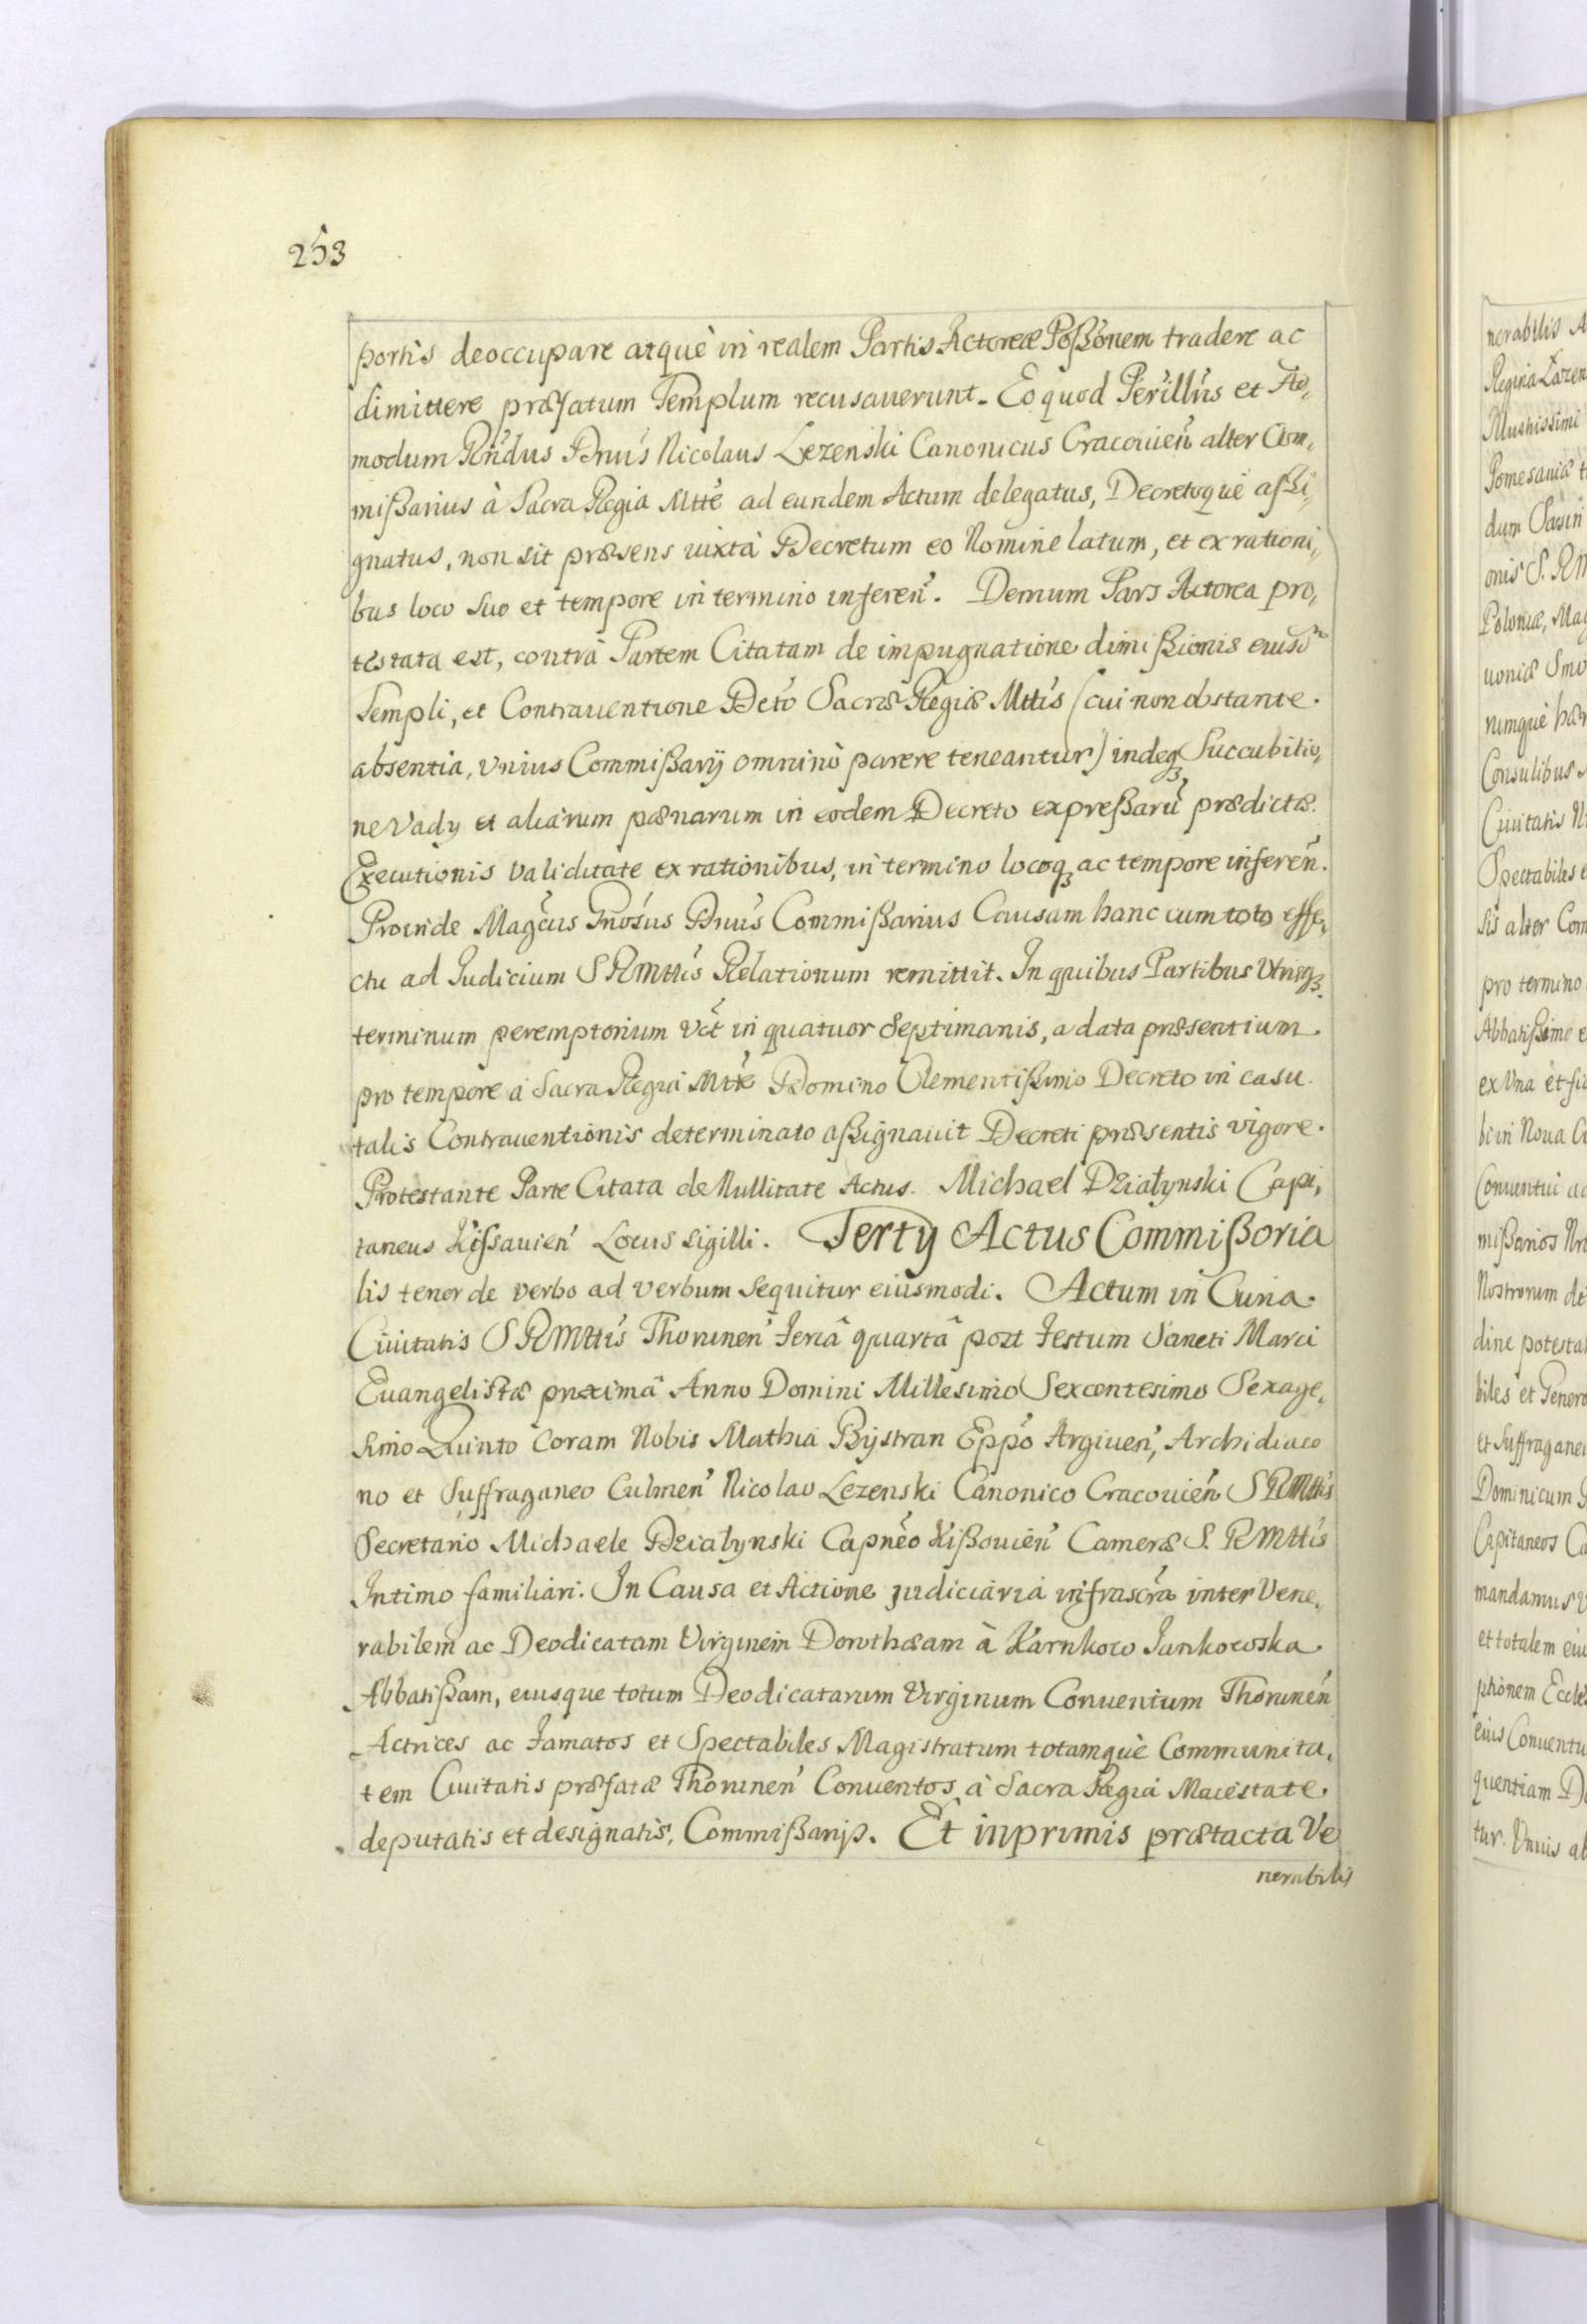 253
portis deoccupare atquè in realem Partis Actoreæ Poßonem tradere ac
dimittere præfatum Templum recusauerunt. Eo quod Perillus et Ad,
modum Rndus Dnus Nicolaus Lezenski Canonicus Cracouien alter Com,
mißarius à Sacra Regia Mtte ad eundem Actum delegatus, Decretoque aßi,
gnatus, non sit præsens iuxta Decretum eo Nomine latum, et ex rationi,
bus loco suo et tempore in termino inferen. Demum Pars Actorea pro,
testata est, contrà Partem Citatam de impugnatione dimißionis eiusd
Templi, et Contrauentione Dcto Sacræ Regiæ Mttis (cui non obstante
absentia, Vnius Commißarÿ omninò parere teneantur) indeq Succubitio,
ne Vadÿ et aliarum pænarum in eodem Decreto expreßaru prædictæ
Executionis Validitate ex rationibus, in termino locoq ac tempore inferen.
Proinde Magcus Gnosus Dnus Commißarius Causam hanc cum toto effe,
ctu ad Iudicium S R Mttis Relationum remittit. In quibus Partibus Utrisq
terminum peremptorium Vct in quatuor Septimanis, a data præsentium
pro tempore à Sacra Regia Mtte Domino Clementißimo Decreto in casu
talis Contrauentionis determinato aßignauit Decreti præsentis vigore.
Protestante Parte Citata de Nullitate Actus. Michael Działynski Capi,
taneus Kißauien Locus Sigilli. Tertÿ Actus Commißoria
lis tenor de verbo ad verbum sequitur eiusmodi. Actum in Curia
Ciuitatis S R Mttis Thorunen feriâ quartâ post festum Sancti Marci
Euangelistæ proximâ Anno Domini Millesimo Sexcentesimo Sexage,
simo Quinto coram Nobis Mathia Bÿstran Eppo Argiuen, Archidiaco
no et Suffraganeo Culmen Nicolao Lezenski Canonico Cracouien S R Mttis
Secretario Michaele Działynski Capneo Kißouien Cameræ S. R Mttis
Intimo familiari. In Causa et Actione judiciaria infrascra inter Vene,
rabilem ac Deodicatam Virginem Dorothæam à Karnkow Jankowska
Abbatißam, eiusque totum Deodicatarum Virginum Conuentum Thorunen
Actrices ac famatos et Spectabiles Magistratum totamquè Communita,
tem Ciuitatis præfatæ Thorunen Conuentos à Sacra Regia Maiestate
deputatis et designatis, Commißarijs. Et inprimis prætacta Ve
nerabilis
nerabilis A
Regina
Illustrissimi
Pomesaniæ
dum
onis S. RM
Poloniæ, Mag
uoniæ Smo
rumque hær
Consulibus
Ciuitatis N
Spectabiles e
sis alter Com
pro termino
Abbatißimo e
ex Vna et
bi in Noua Ci
Conuentui ac
mißarios Nr
Nostrorum de
dine potestat
biles et Genero
et Suffraganei
Dominicum
Capitaneos Ca
mandamus V
et totalem eiu
ptionem Eccle
eius Conuentu
quentiam De
tur. Vnius ab